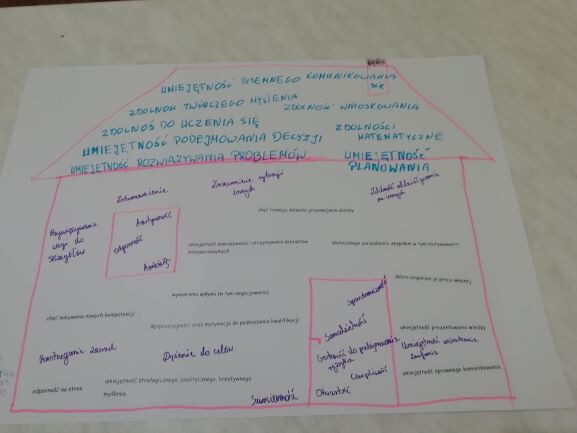 UMIEJĘTNOŚĆ PISEMNEGO KOMUNIKOWANIA
SIĘ
ZDOLNOŚĆ TWÓRCZEGO MYŚLENIA
ZDOLNOŚĆ WNIOSKOWANIA
ZDOLNOŚ DO UCZENIA SIĘ
ZDOLNOŚCI
MATEMATYCZNE
UMIEJĘTNOŚĆ PODEJMOWANIA DECYZJI
UMIEJĘTNOŚĆ ROZWIĄZYWANIA PROBLEMÓW
UMIEJĘTNOŚĆ
PLANOWANIA
Zrozumienie
innych
Zdolność oddziaływania
na innych
Przywiązywanie
wagi do
szczegółów
Asertywność
odporność
Ambicja
chęć rozwoju, łatwość przyswajania wiedzy
umiejętność nawiązywania i utrzymywania kontaktów
interpersonalnych
skutecznego zarządzania zespołem w tym motywowani
dobra organizacja pracy własnej
wywierania wpływu (w tym negocjowania)
spontaniczność
chęć nabywania nowych kompetencji
dyspozycyjności oraz motywacja do podnoszenia kwalifikacji
Samodzielność
umiejętność prezentowania wiedzy
Przestrzeganie zasad
Dążenie do celów
Gotowość do podejmowania
ryzyka
Umiejętność
Cierpliwość
umiejętność sprawnego komunikowania
odporność na stres
umiejętność strategicznego, analitycznego, kreatywnego
myślenia
Sumienność
Otwartość